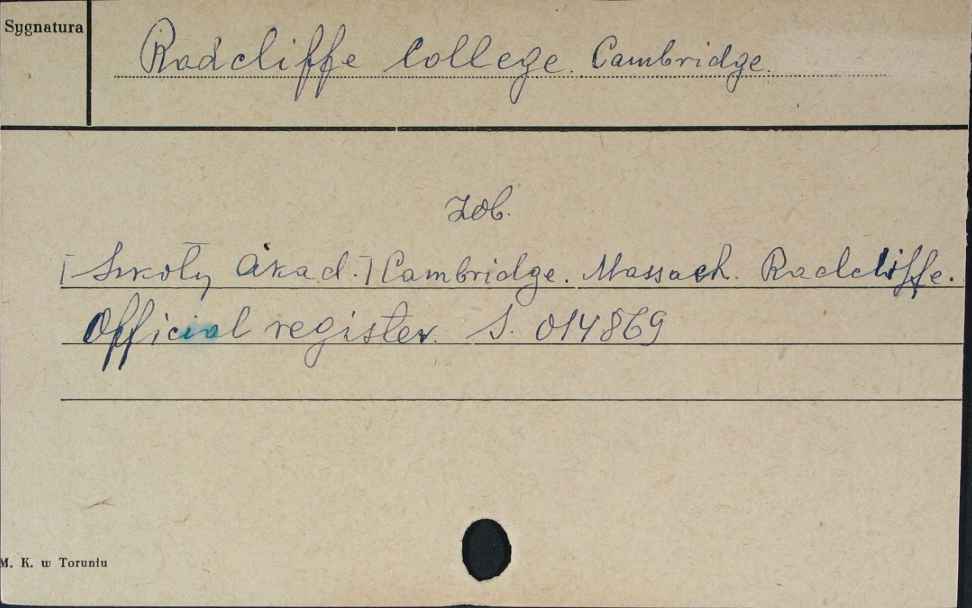 Sygnatura
Radcliffe College. Cambridge.
zob.
[Szkoły Akad.] Cambridge. Massach. Radcliffe.
Official register. S. 014869
M. K. w Toruniu